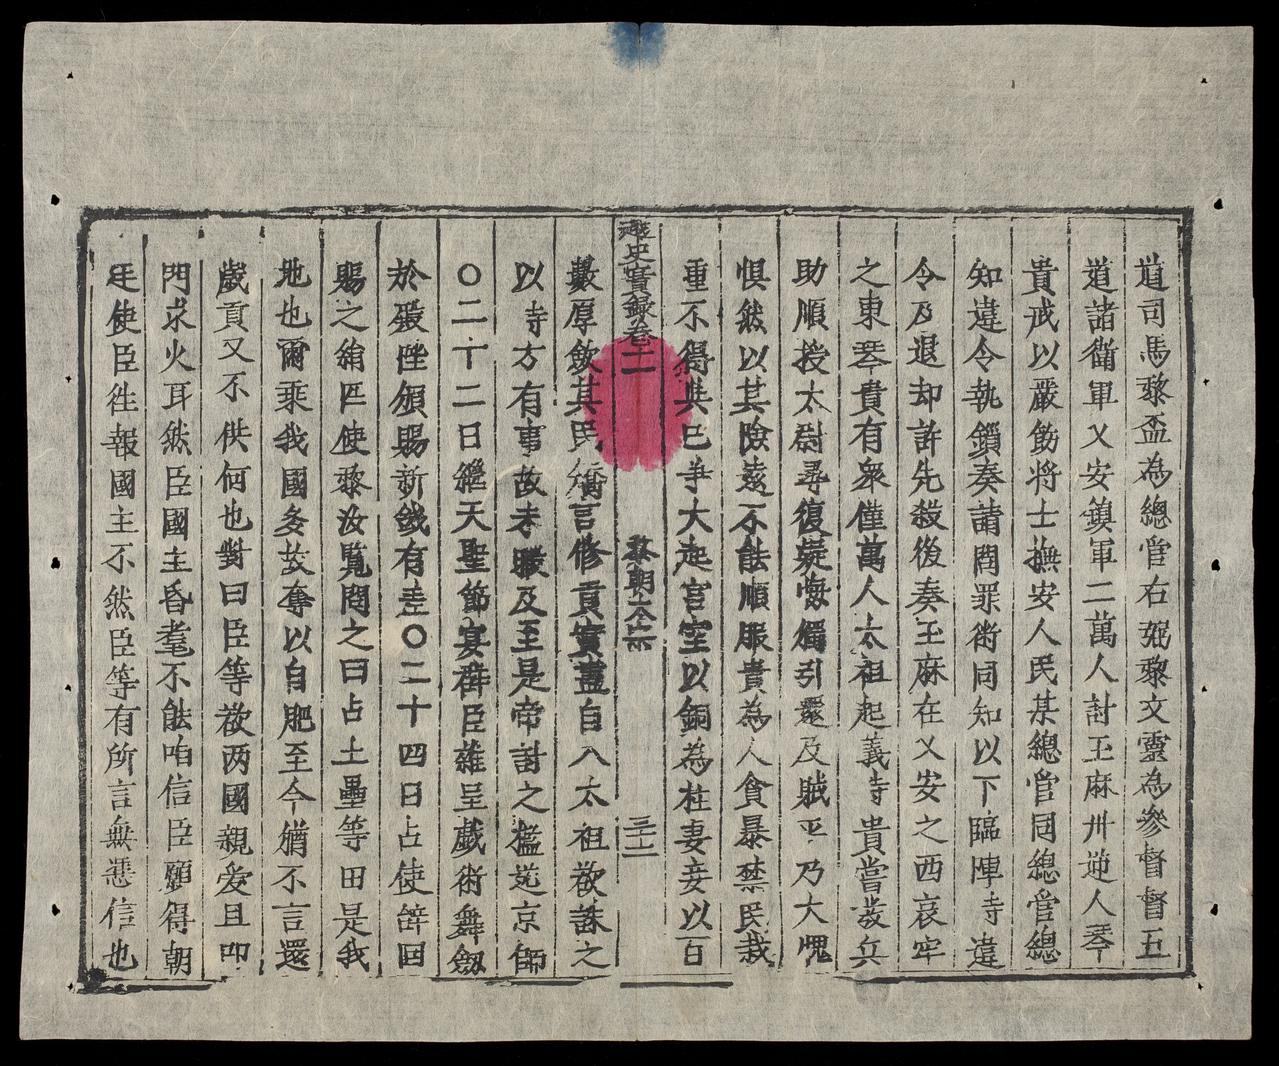 道司馬黎盃為總管右弼黎文靈為參督督五
道諸衛軍乂安鎮軍二萬人討玉麻州逆人琴
貴戒以嚴飭将士撫安人民某總管同總管總
知違令執鎖奏請問罪術同知以下臨陣寺違
令及退却許先殺後奏玉麻在乂安之西哀牢
之東琴貴有衆僅萬人太祖起義寺貴嘗發兵
助順授太尉尋復疑悔獨引還及賊平乃大愧
惧然以其險遠不能順服貴為人貪暴禁民栽
重不得與已爭大起宮室以銅為柱妻妾以百
越史實録卷十一
黎朝太宗
三十二
數厚斂其民矯言修貢實盡自入太祖欲誅之
以寺方有事故未暇及至是帝討之檻送京師
〇二十二日繼天聖節宴群臣雜呈戲術舞劔
於殿陛頒賜新錢有差〇二十四日占使辞囬
賜之絹匹使黎汝覧問之曰占土壘等田是我
地也爾乘我國多故奪以自肥至今猶不言還
歲貢又不供何也對曰臣等欲两國親爱且叩
門求火耳然臣國主昏耄不能咱信臣願得朝
廷使臣徃報國主不然臣等有所言無憑信也